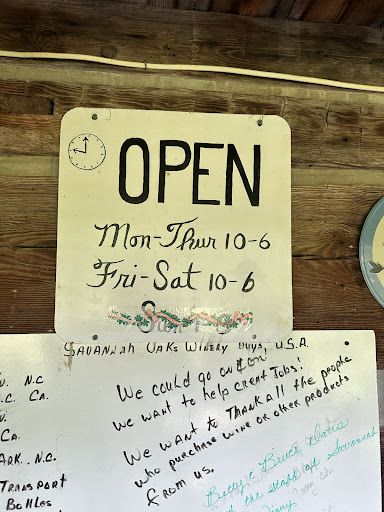 OPEN
Mon-Thur 10-6
Fri-Sat 10-6
SAVANNAH OAKS WINERY BUYS, U.S.A.
N.C
.C. Ca.
Ca.
ARK. N.C.
TRANSPORT
Bottles
We could go on & on!
we want to help creat Jobs!
We want to THANK All the people
who purchase wine or other products
from us.
Betty & Bruce
the staff of Savannah